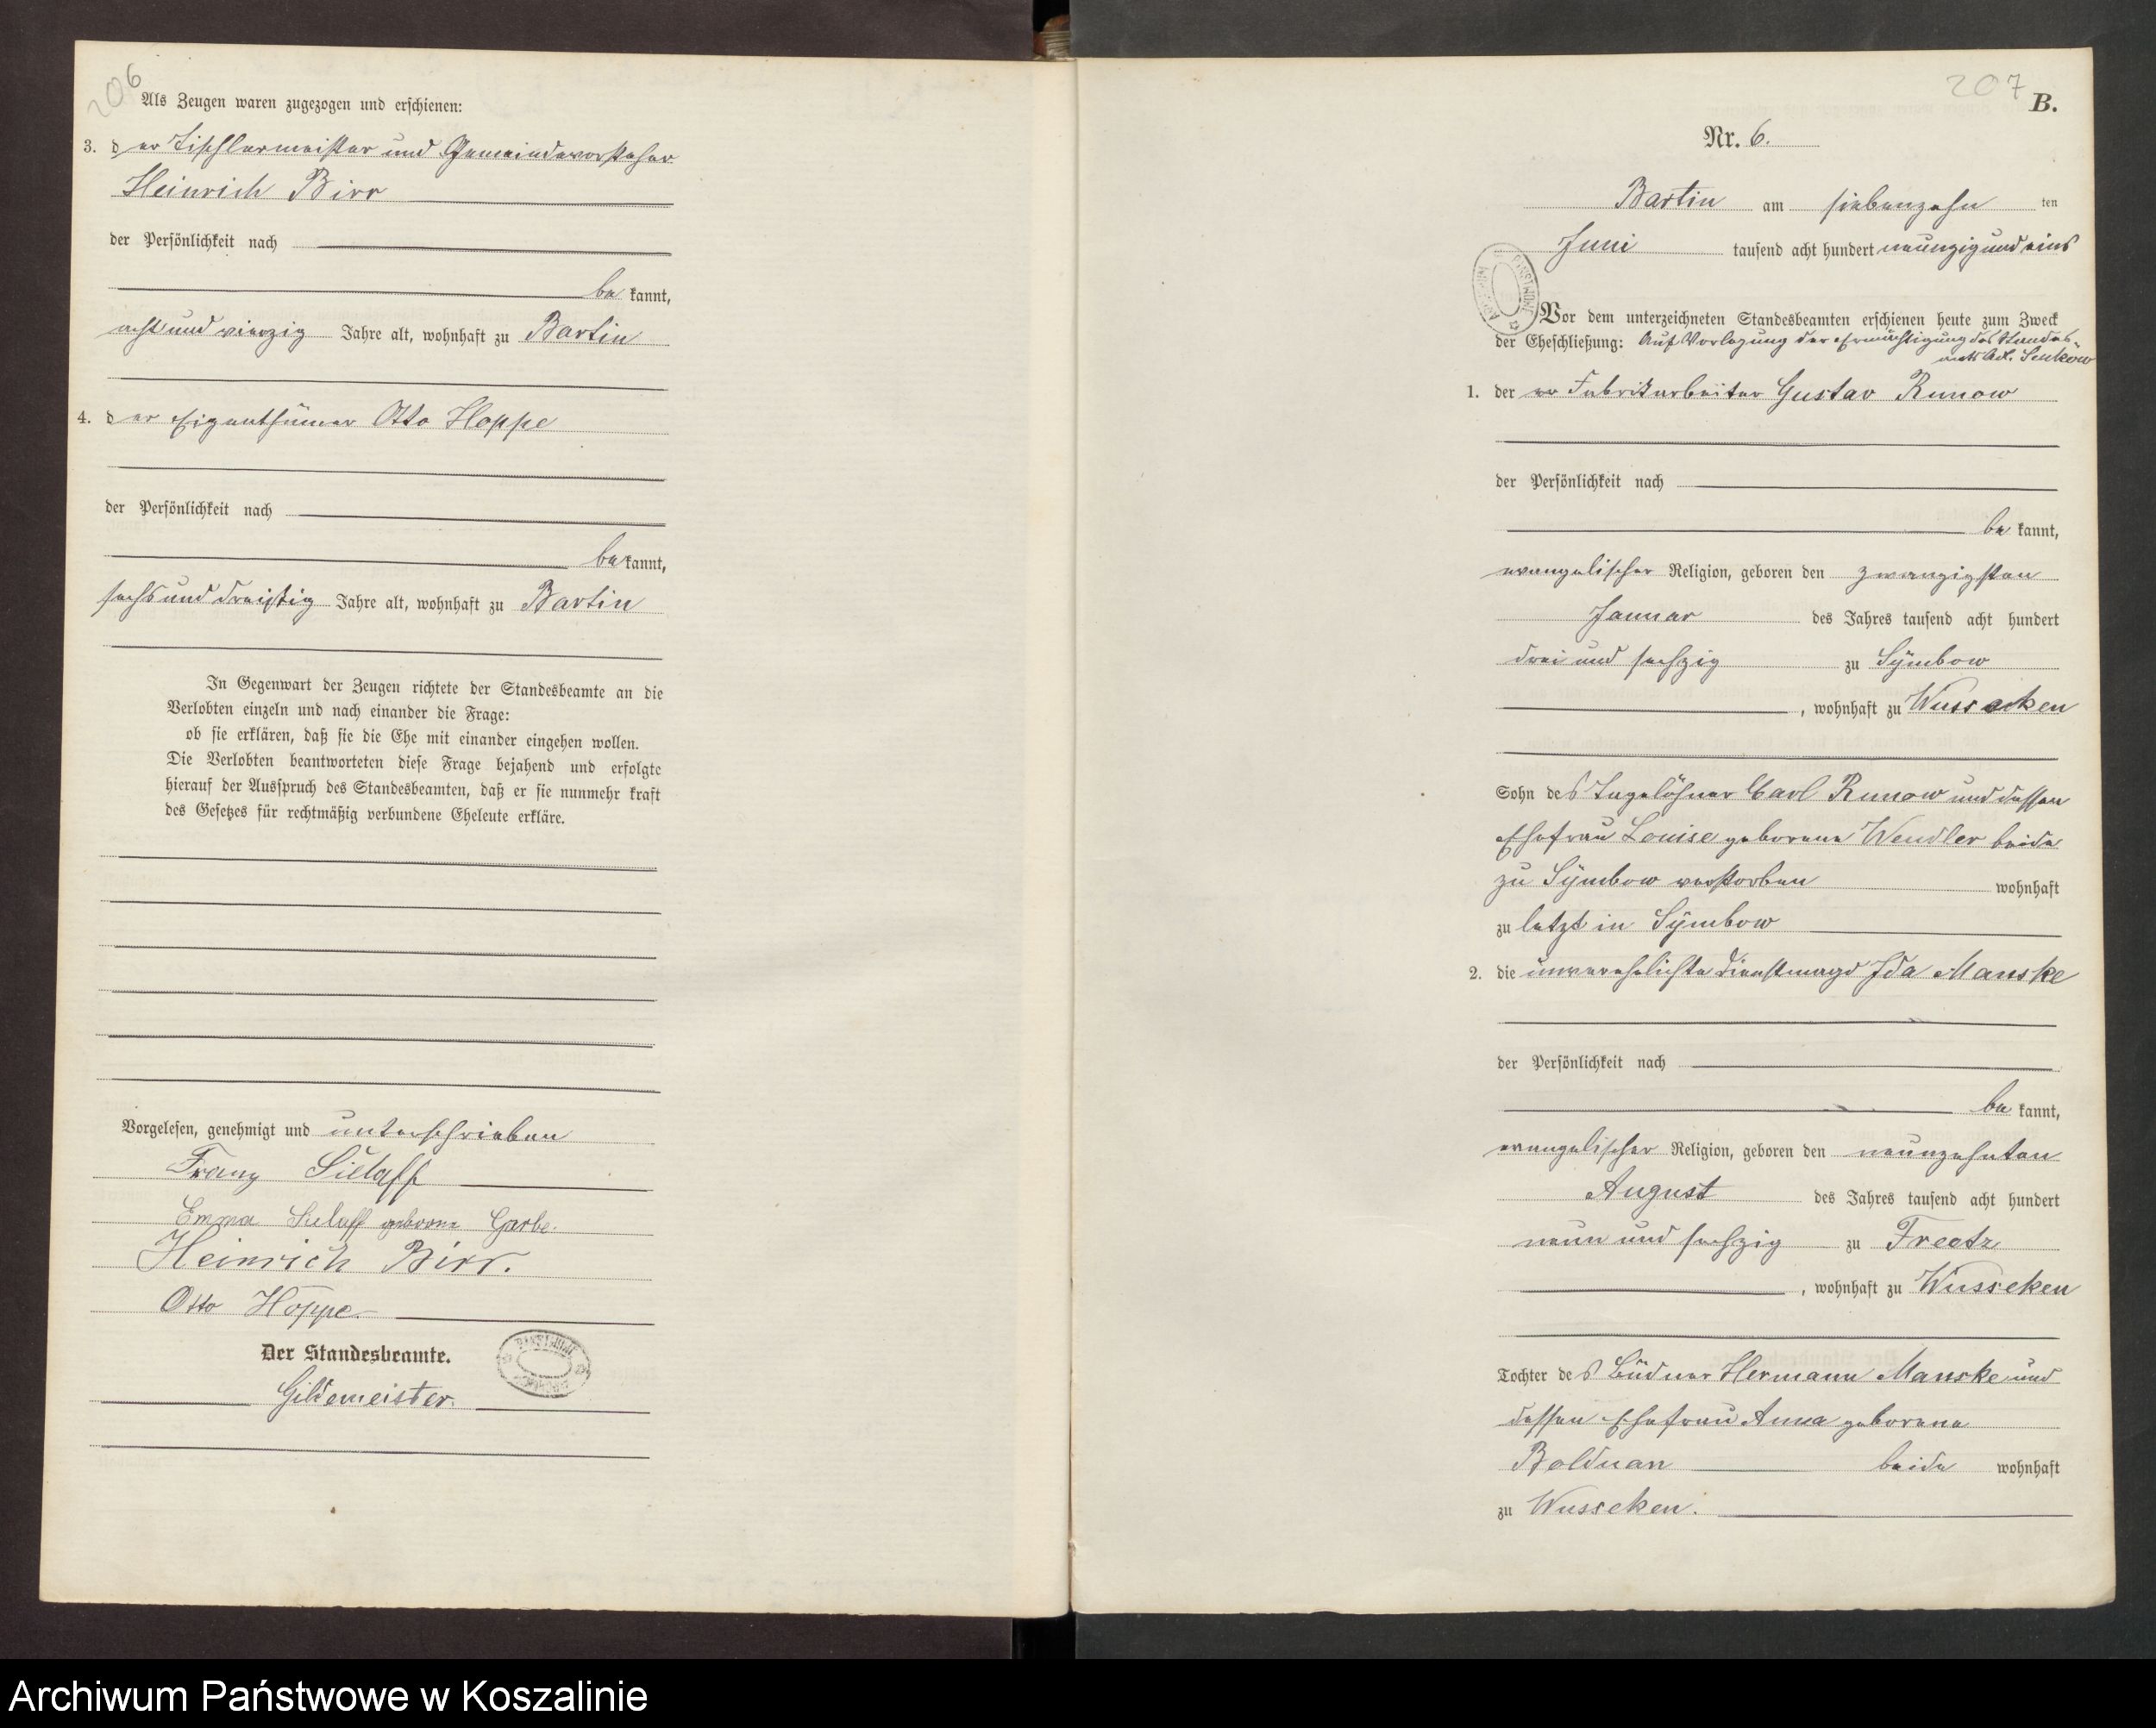 206
Als Zeugen waren zugezogen und erschienen:
3. der Tischlermeister und Gemeindevorsteher
Heinrich Birr
der Persönlichkeit nach
be kannt,
acht und vierzig Jahre alt, wohnhaft zu Bartin
4. der Eigenthümer Otto Hoppe
der Persönlichkeit nach
be kannt,
sechs und dreißig Jahre alt, wohnhaft zu Bartin
In Gegenwart der Zeugen richtete der Standesbeamte an die
Verlobten einzeln und nach einander die Frage:
ob sie erklären, daß sie die Ehe mit einander eingehen wollen.
Die Verlobten beantworteten diese Frage bejahend und erfolgte
hierauf der Ausspruch des Standesbeamten, daß er sie nunmehr kraft
des Gesetzes für rechtmäßig verbundene Eheleute erkläre.
Vorgelesen, genehmigt und unterschrieben
Franz Sielaff
Emma Sielaff geborene Garbe.
Heinrich Birr.
Otto Hoppe
Der Standesbeamte.
Gildemeister.
207
B.
Nr. 6.
Bartin am siebenzehn ten
Juni tausend acht hundert neunzig und eins
Vor dem unterzeichneten Standesbeamten erschienen heute zum Zweck
der Eheschließung: Auf Vorlegung der Ermächtigung des Standes-
amts Adl. Suckow
1. der Fabrikarbeiter Gustav Runow
der Persönlichkeit nach
be kannt,
evangelischer Religion, geboren den zwanzigsten
Januar des Jahres tausend acht hundert
drei und sechzig zu Symbow
, wohnhaft zu Wussecken
Sohn des Tagelöhner Carl Runow und dessen
Ehefrau Louise geborene Wendler beide
zu Symbow verstorben wohnhaft
zu letzt in Symbow
2. die unverehelichte Dienstmagd Ida Manske
der Persönlichkeit nach
be kannt,
evangelischer Religion, geboren den neunzehnten
August des Jahres tausend acht hundert
neun und sechzig zu Freetz
, wohnhaft zu Wusseken
Tochter des Büdner Hermann Manske und
dessen Ehefrau Anna geborene
Bolduan beide wohnhaft
zu Wusseken.
Archiwum Państwowe w Koszalinie